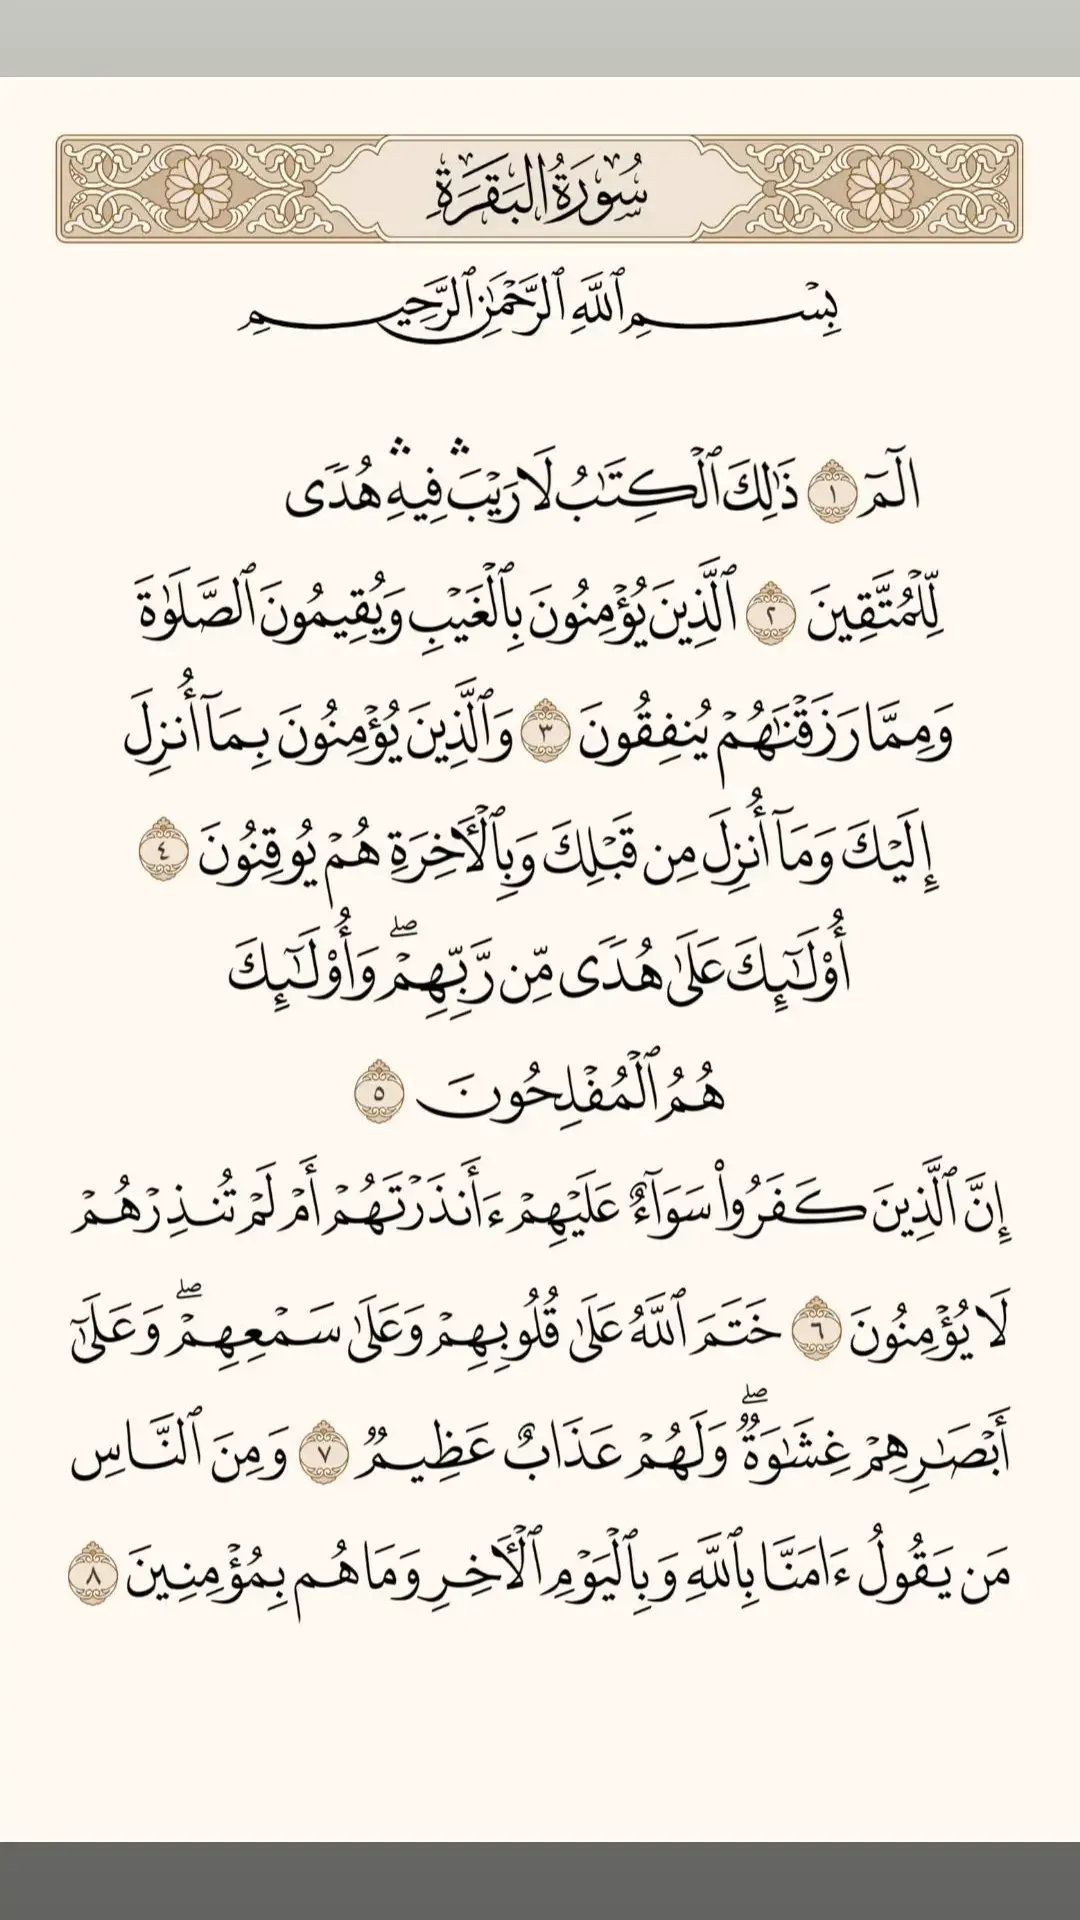 سُورَةُ البَقَرَةِ
بِسۡمِ ٱللَّهِ ٱلرَّحۡمَٰنِ ٱلرَّحِيمِ
الٓمٓ ١ ذَٰلِكَ ٱلۡكِتَٰبُ لَا رَيۡبَۛ فِيهِۛ هُدٗى
لِّلۡمُتَّقِينَ ٢ ٱلَّذِينَ يُؤۡمِنُونَ بِٱلۡغَيۡبِ وَيُقِيمُونَ ٱلصَّلَوٰةَ
وَمِمَّا رَزَقۡنَٰهُمۡ يُنفِقُونَ ٣ وَٱلَّذِينَ يُؤۡمِنُونَ بِمَآ أُنزِلَ
إِلَيۡكَ وَمَآ أُنزِلَ مِن قَبۡلِكَ وَبِٱلۡأٓخِرَةِ هُمۡ يُوقِنُونَ ٤
أُوْلَٰٓئِكَ عَلَىٰ هُدٗى مِّن رَّبِّهِمۡۖ وَأُوْلَٰٓئِكَ
هُمُ ٱلۡمُفۡلِحُونَ ٥
إِنَّ ٱلَّذِينَ كَفَرُواْ سَوَآءٌ عَلَيۡهِمۡ ءَأَنذَرۡتَهُمۡ أَمۡ لَمۡ تُنذِرۡهُمۡ
لَا يُؤۡمِنُونَ ٦ خَتَمَ ٱللَّهُ عَلَىٰ قُلُوبِهِمۡ وَعَلَىٰ سَمۡعِهِمۡۖ وَعَلَىٰٓ
أَبۡصَٰرِهِمۡ غِشَٰوَةٞۖ وَلَهُمۡ عَذَابٌ عَظِيمٞ ٧ وَمِنَ ٱلنَّاسِ
مَن يَقُولُ ءَامَنَّا بِٱللَّهِ وَبِٱلۡيَوۡمِ ٱلۡأٓخِرِ وَمَا هُم بِمُؤۡمِنِينَ ٨